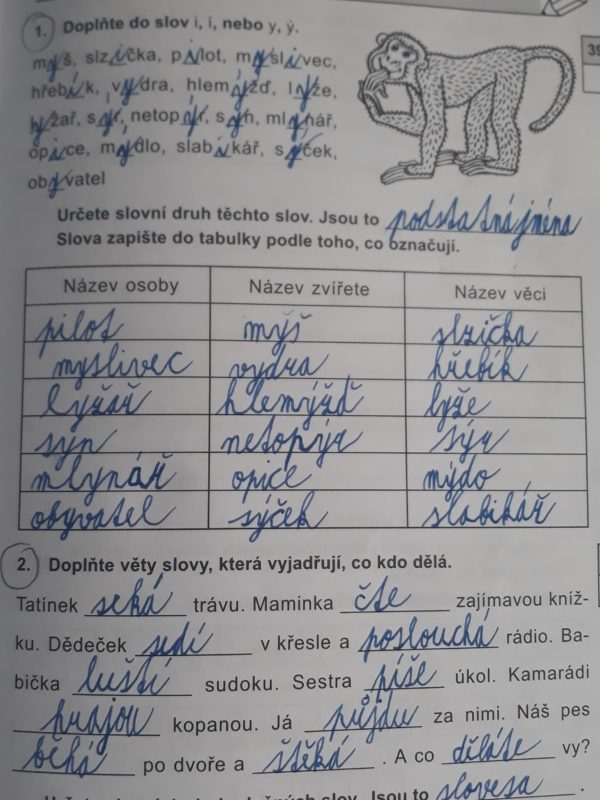 1. Doplňte do slov i, í, nebo y, ý.
myš, slzička, pilot, myslivec,
hřebík, vydra, hlemýžď, lyže,
lyžař, sýr, netopýr, syn, mlynář,
opice, mýdlo, slabikář, sýček,
obyvatel
39
Určete slovní druh těchto slov. Jsou to podstatná jména
Slova zapište do tabulky podle toho, co označují.
Název osoby Název zvířete Název věci
pilot myš slzička
myslivec vydra hřebík
lyžař hlemýžď lyže
syn netopýr sýr
mlynář opice mýdo
obyvatel sýček slabikář
2. Doplňte věty slovy, která vyjadřují, co kdo dělá.
Tatínek seká trávu. Maminka čte zajímavou kníž-
ku. Dědeček sedí v křesle a poslouchá rádio. Ba-
bička luští sudoku. Sestra píše úkol. Kamarádi
hrajou kopanou. Já půjdu za nimi. Náš pes
běhá po dvoře a štěká. A co děláte vy?
slov. Jsou to slovesa.